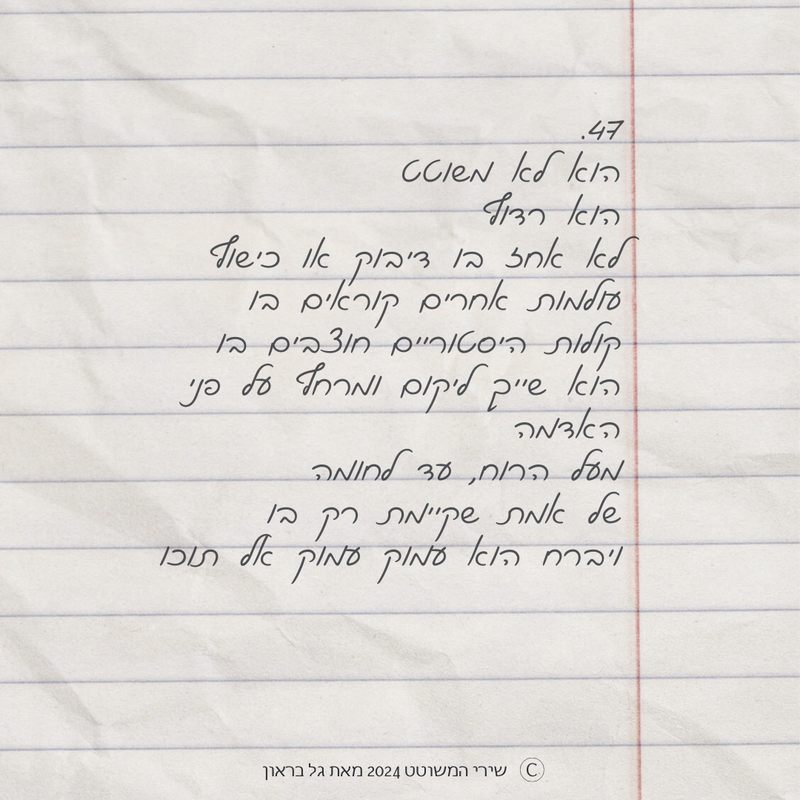 47.
הוא לא משוטט
הוא רדוף
לא אחז בו דיבוק או כישוף
עולמות אחרים קוראים בו
קולות היסטוריים חוצבים בו
הוא שייך ליקום ומרחף על פני
האדמה
מעל הרוח, עד לחומה
של אמת שקיימת רק בו
ויברח הוא עמוק עמוק אל תוכו
© שירי המשוטט 2024 מאת גל בראון